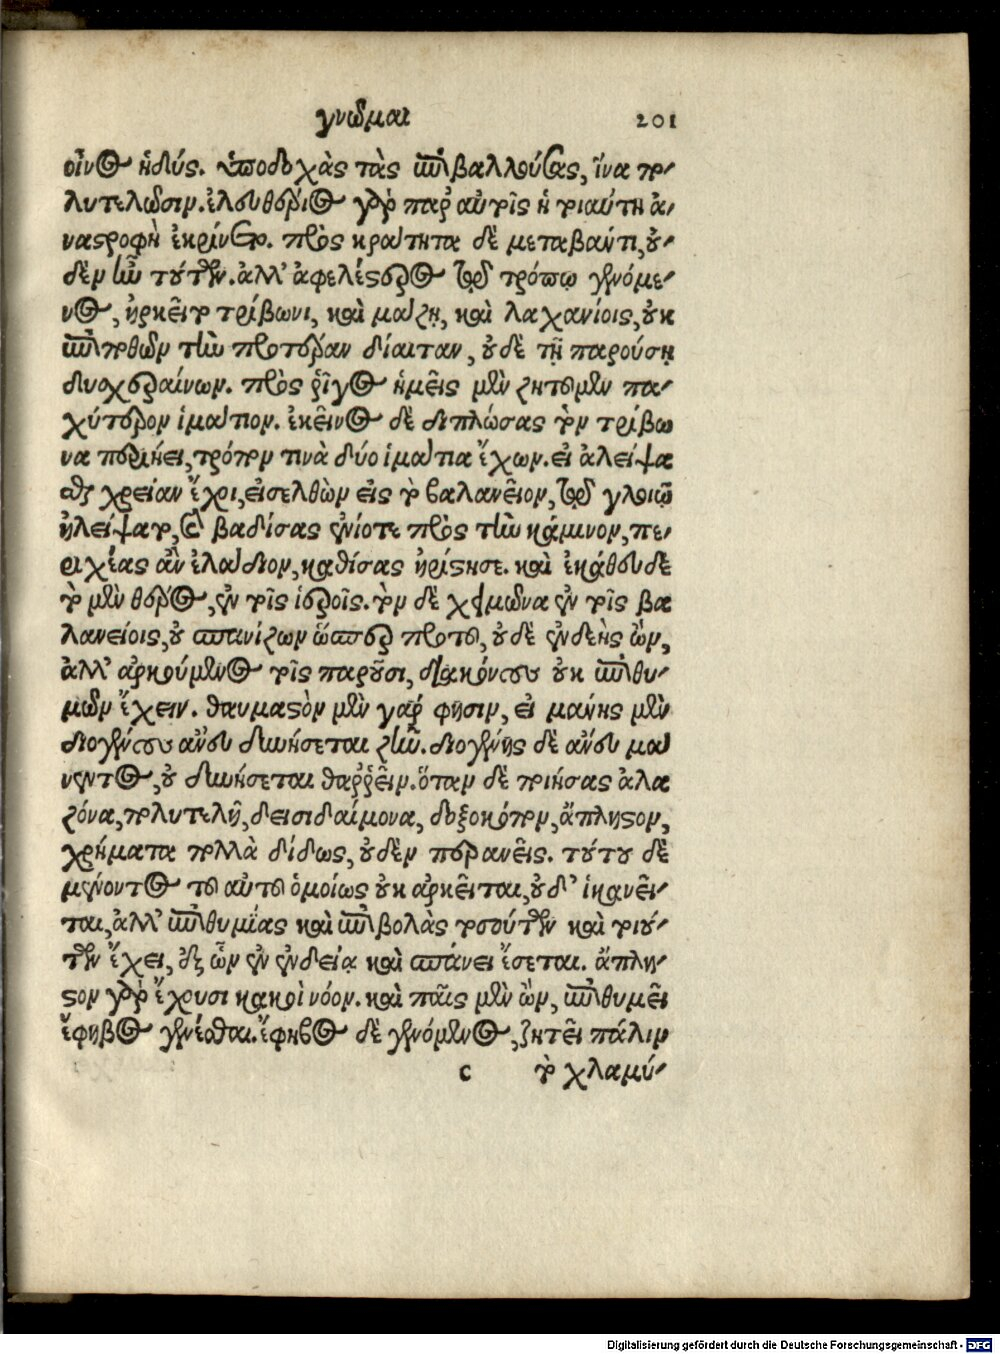 γνῶμαι 201
οἶνος ἡδύς. ὑποδοχὰς τὰς ἐπιβαλλούσας, ἵνα πο-
λυτελῶσιν. ἐλευθέριος γὰρ παρ' αὐτοῖς ἡ τοιαύτη ἀ-
ναστροφὴ ἐκρίνετο. πρὸς κράτητα δὲ μεταβάντι, οὐ-
δὲν ἦν τούτων. ἀλλ' ἀφελέστερος τῷ τρόπῳ γενόμε-
νος, ἠρκεῖτο τρίβωνι, καὶ μάζῃ, καὶ λαχανίοις, οὐκ
ἐπιποθῶν τὴν προτέραν δίαιταν, οὐδὲ τῇ παρούσῃ
δυσχεραίνων. πρὸς ῥῖγος ἡμεῖς μὲν ζητοῦμεν πα-
χύτερον ἱμάτιον. ἐκεῖνος δὲ διπλώσας τὸν τρίβω
να περιῄει, τρόπον τινὰ δύο ἱμάτια ἔχων. εἰ ἀλείψα
σθαι χρείαν ἔχοι, εἰσελθὼν εἰς τὸ βαλανεῖον, τῷ γλοιῷ
ἠλείψατο, καὶ βαδίσας ἐνίοτε πρὸς τὴν κάμινον, πε-
ριχέας ἂν ἐλάδιον, καθίσας ἠρίστησε. καὶ ἐκάθευδε
τὸ μὲν θέρος, ἐν τοῖς ἱεροῖς. τὸν δὲ χειμῶνα ἐν τοῖς βα
λανείοις, οὐ σπανίζων ὥσπερ προτοῦ, οὐδὲ ἐνδεὴς ὢν,
ἀλλ' ἀρκούμενος τοῖς παροῦσι, διακόνους οὐκ ἐπιθυ-
μῶν ἔχειν. θαυμαστὸν μὲν γάρ φησιν, εἰ μάνης μὲν
διογένους ἄνευ διωήσεται ζῆν. διογένης δὲ ἄνευ μά
νεντος, οὐ διωήσεται θαρῥεῖν. ὅταν δὲ ποιήσας ἀλα
ζόνα, πολυτελῆ, δεισιδαίμονα, δοξοκόπον, ἄπληστον,
χρήματα πολλὰ δίδως, οὐδὲν περανεῖς. τούτου δὲ
μένοντος τοῦ αὐτοῦ ὁμοίως οὐκ ἀρκεῖται, οὐδ' ἱκανεῖ-
ται, ἀλλ' ἐπιθυμίας καὶ ἐπιβολὰς τοσούτων καὶ τοιού-
των ἔχει, ἐξ ὧν ἐν ἐνδείᾳ καὶ σπάνει ἔσεται. ἄπλη-
στον γὰρ ἔχουσι κακοὶ νόον. καὶ παῖς μὲν ὢν, ἐπιθυμεῖ
ἔφηβος γενέσθαι. ἔφηβος δὲ γενόμενος, ζητεῖ πάλιν
c τὸ χλαμύ-
Digitalisierung gefördert durch die Deutsche Forschungsgemeinschaft - DFG